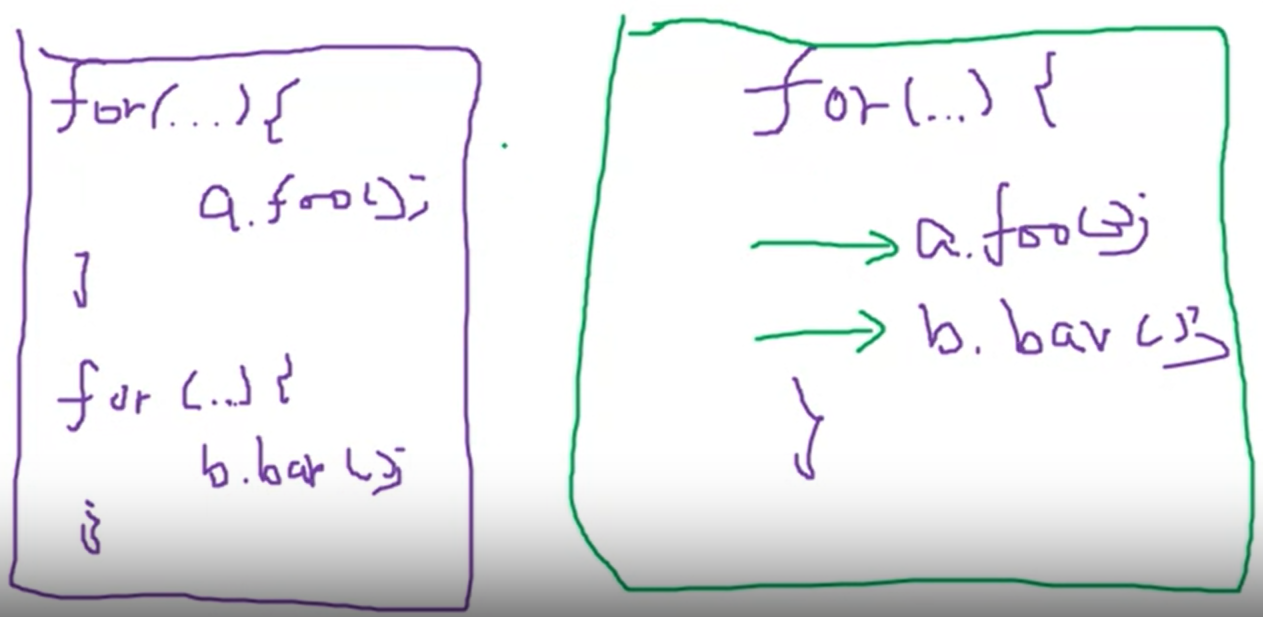 for(...){
a.foo();
}
for (...) {
b.bar();
}
for (...) {
a.foo();
b.bar();
}